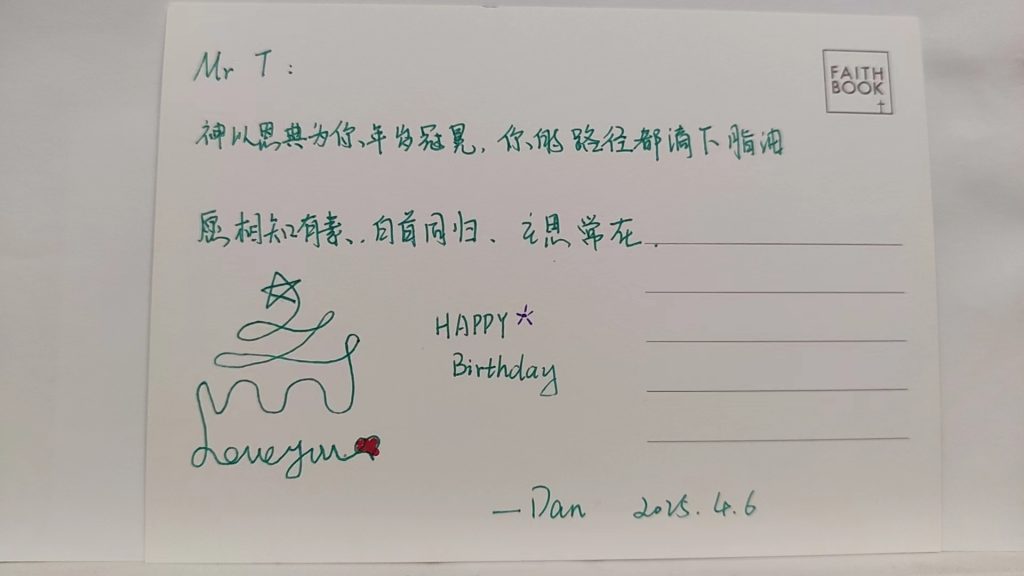 Mr T:
FAITH
BOOK
神以恩典为你年岁冠冕,你的路径都滴下脂油
愿相知有素、白首同归、主恩常在.
HAPPY
Birthday
Love you
—Dan 2025.4.6